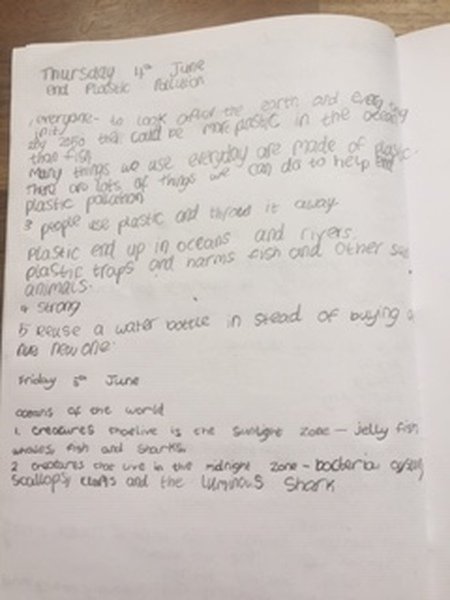 Thursday 4th June
end Plastic Pollution
1 everyone - to look after the earth and everything
in it
2 by 2050 there could be more plastic in the ocean
than fish
Many things we use everyday are made of plastic.
There are lots of things we can do to help end
plastic pollution
3 people use plastic and throw it away.
Plastic end up in oceans and rivers.
plastic traps and harms fish and other sea
animals.
4 strong
5 Reuse a water bottle in stead of buying a
new one.
Friday 5th June
oceans of the world
1. creatures live is the sunlight zone - jelly fish
whales, fish and sharks.
2 creatures that live in the midnight zone - bacteria
scallops, clams and the Luminous Shark